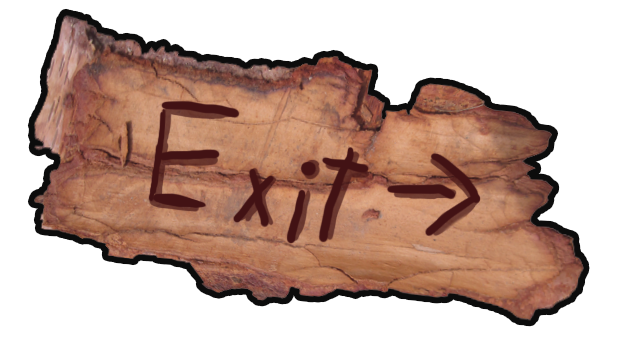 Exit →